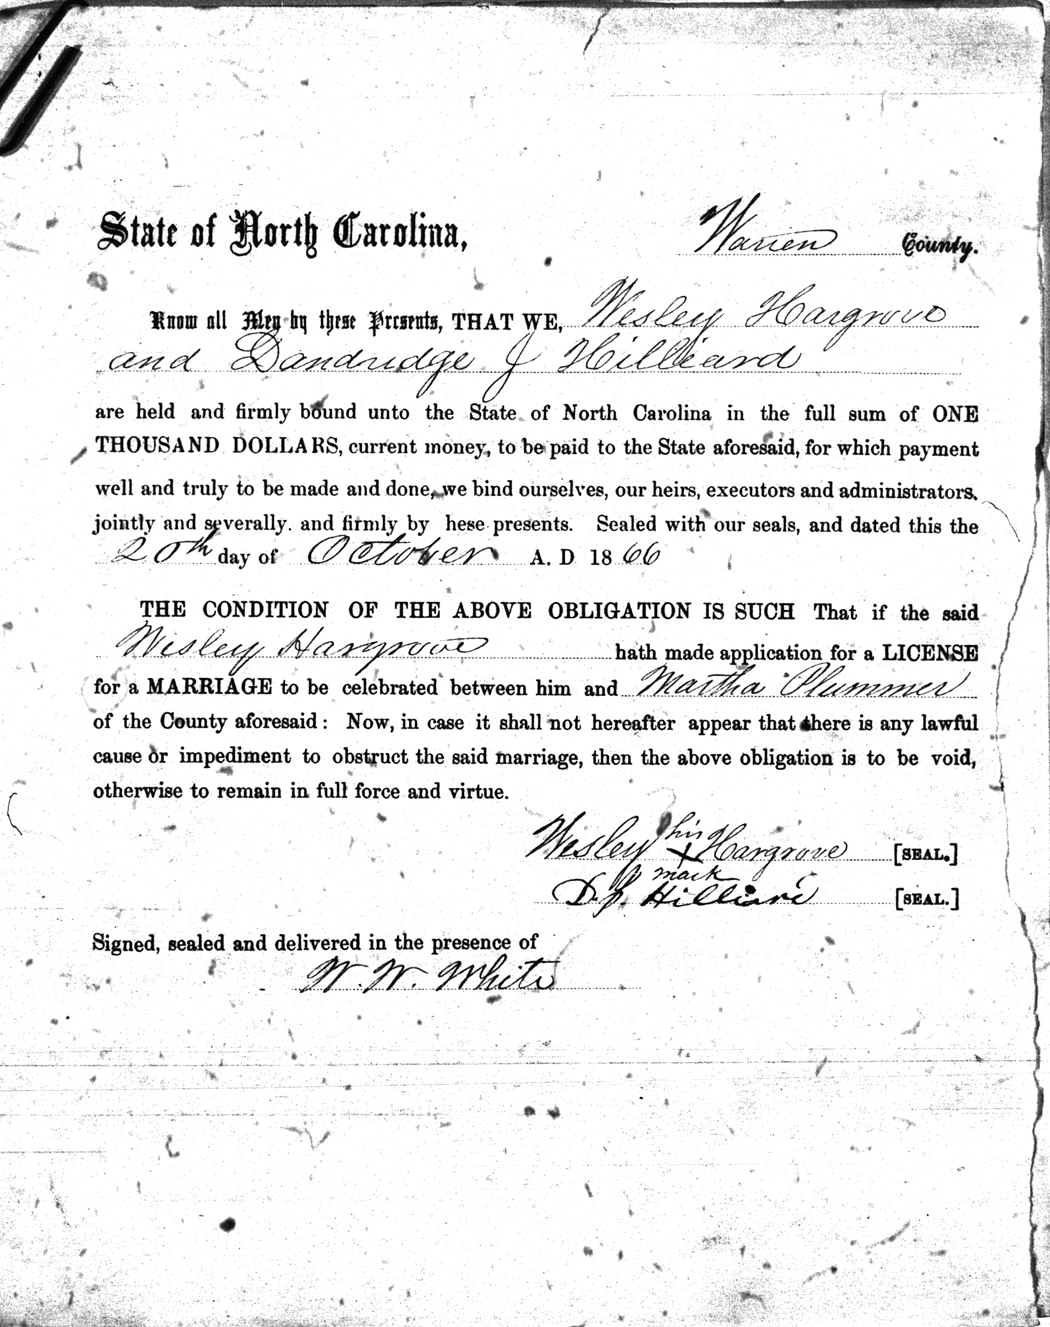 State of North Carolina, Warren County.
Know all Men by these Presents, THAT WE, Wesley Hargrove
and Dandridge J Hilliard
are held and firmly bound unto the State of North Carolina in the full sum of ONE
THOUSAND DOLLARS, current money, to be paid to the State aforesaid, for which payment
well and truly to be made and done, we bind ourselves, our heirs, executors and administrators,
jointly and severally. and firmly by hese presents. Sealed with our seals, and dated this the
20th day of October A. D 1866
THE CONDITION OF THE ABOVE OBLIGATION IS SUCH That if the said
Wesley Hargrove hath made application for a LICENSE
for a MARRIAGE to be celebrated between him and Martha Plummer
of the County aforesaid: Now, in case it shall not hereafter appear that there is any lawful
cause or impediment to obstruct the said marriage, then the above obligation is to be void,
otherwise to remain in full force and virtue.
Wesley his X mark Hargrove [SEAL.]
D. J. Hilliard [SEAL.]
Signed, sealed and delivered in the presence of
W. W. White